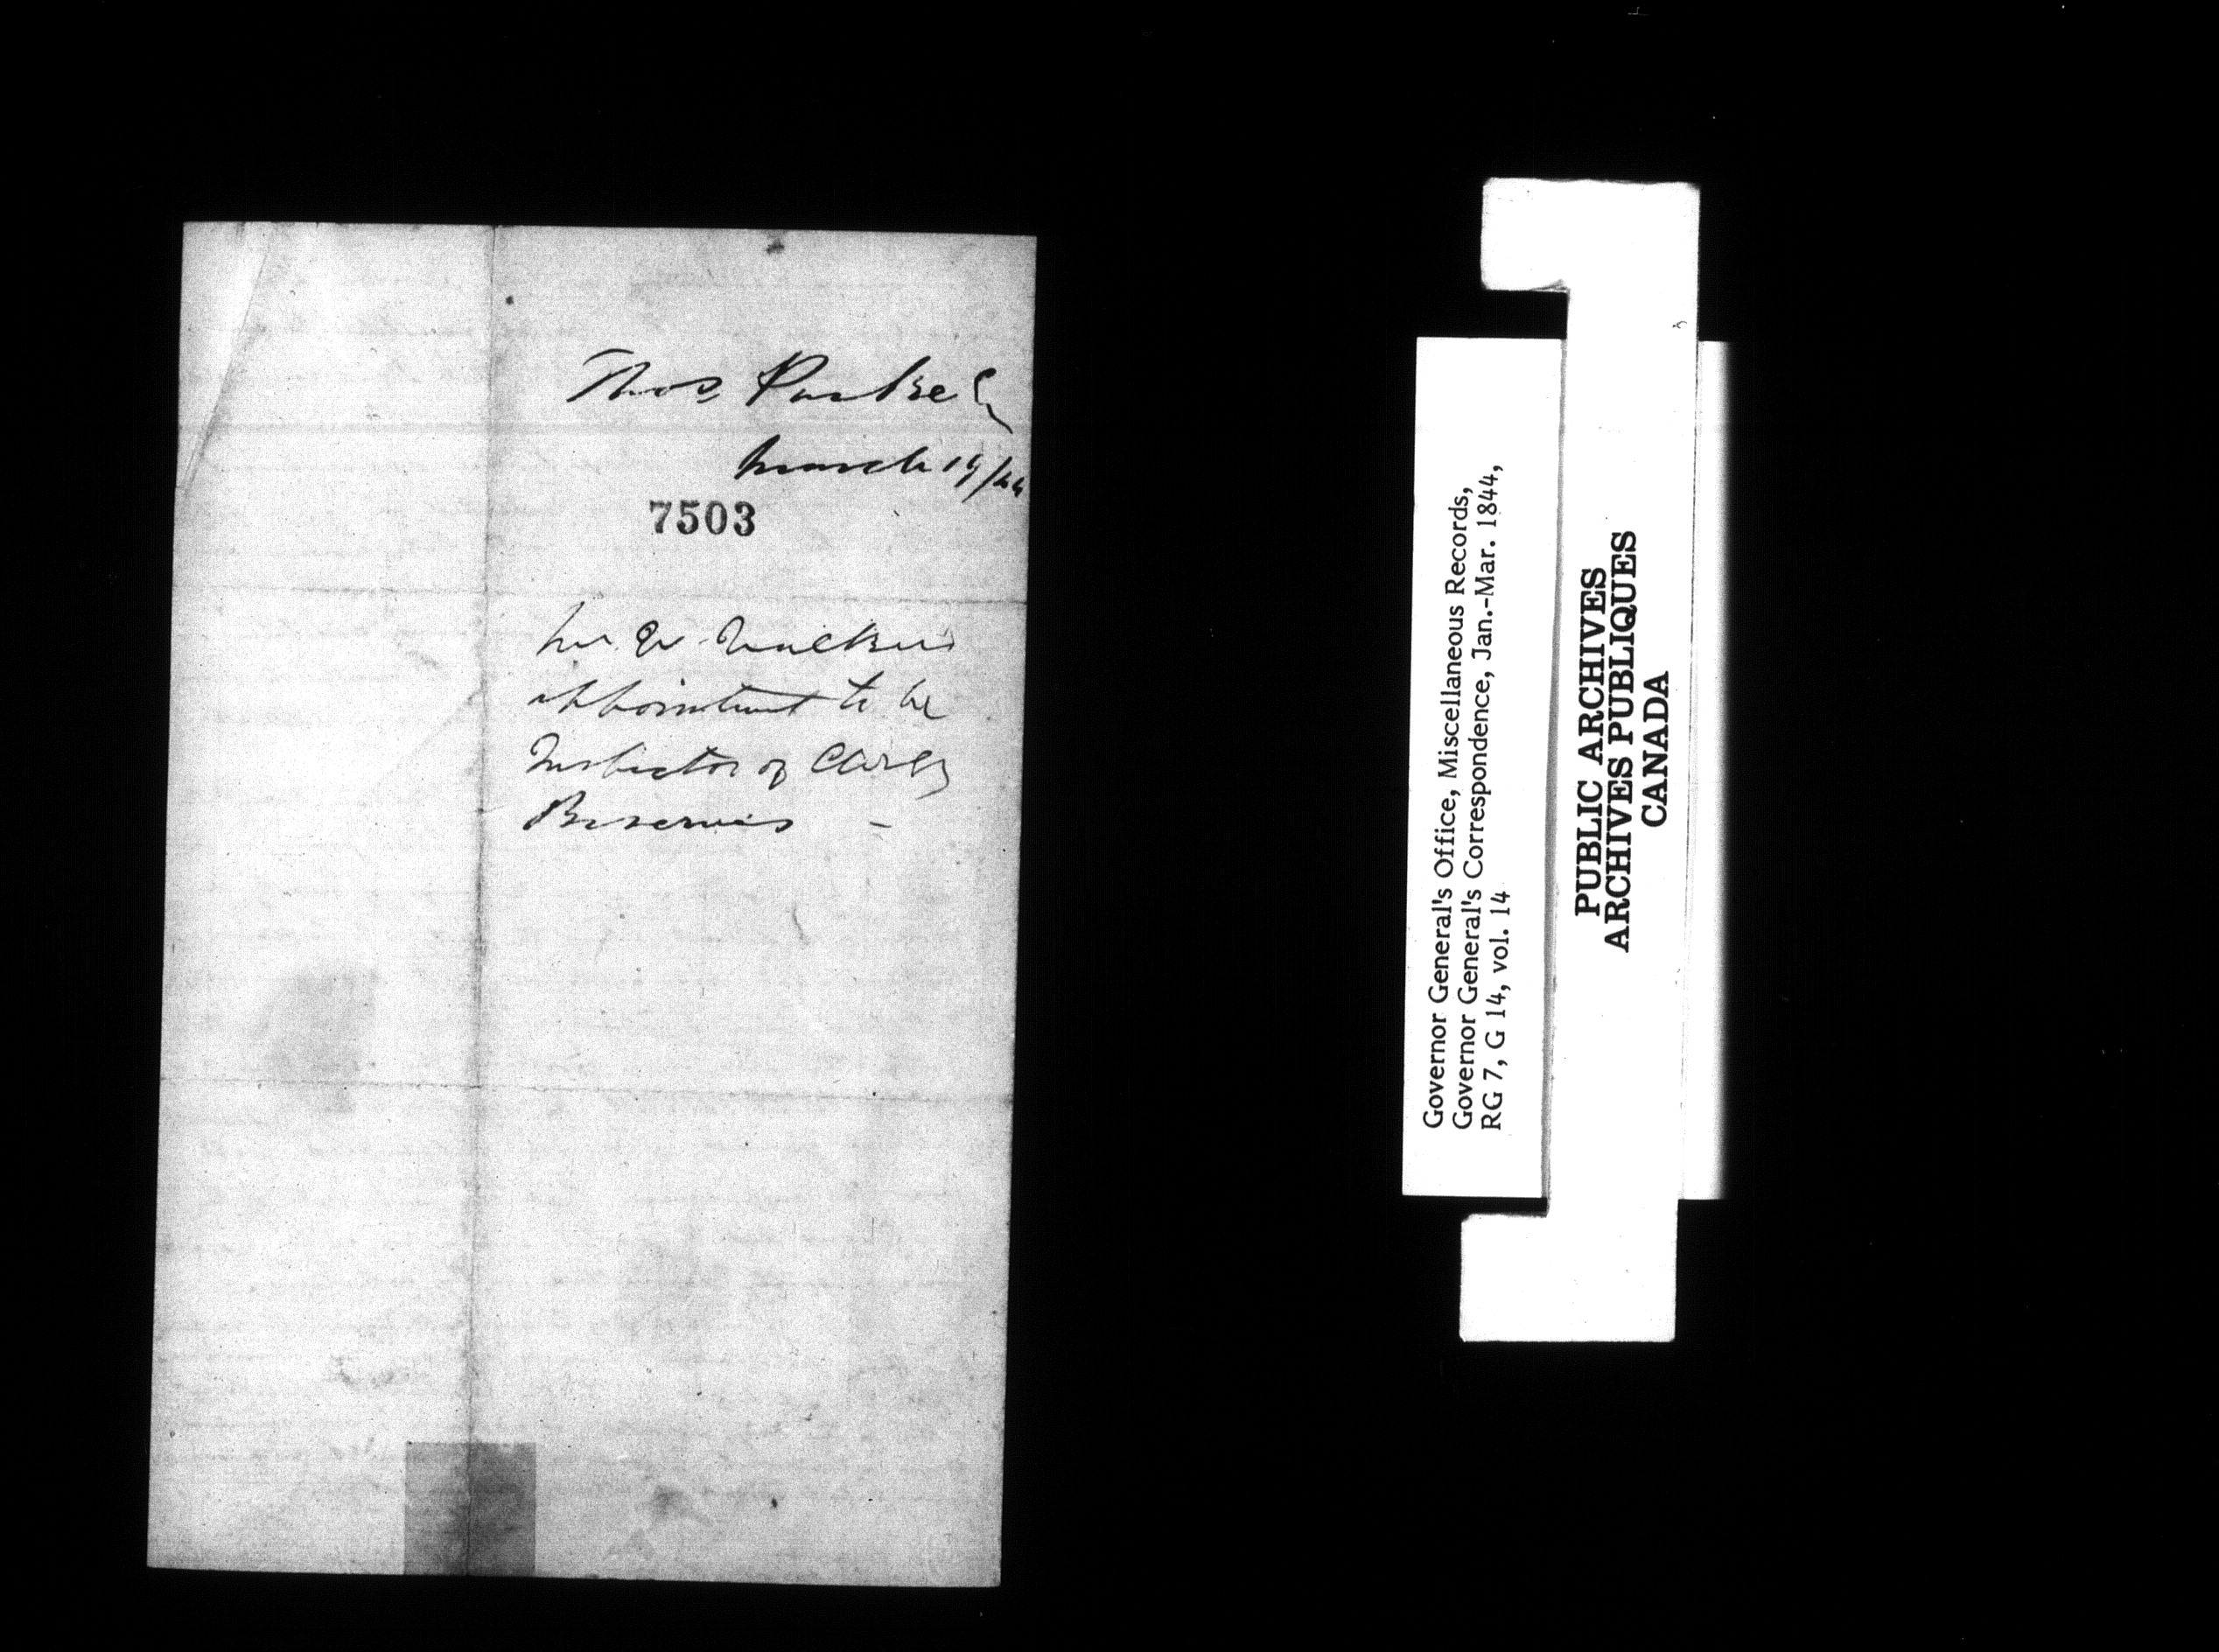 Thos Parke Esq
March 19/44
7503
Mr W.
appointment to be
Inspector of Clergy
Reserves -
Governor General's Office, Miscellaneous Records,
Governor General's Correspondence, Jan.-Mar. 1844,
RG 7, G 14, vol. 14
PUBLIC ARCHIVES
ARCHIVES PUBLIQUES
CANADA